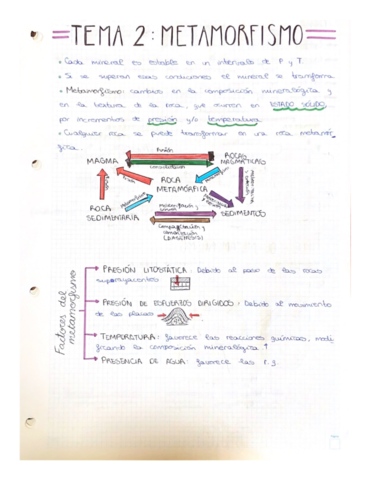 TEMA 2: METAMORFISMO
• Cada mineral es estable en un intervalo de P y T.
• Si se superan esas condiciones el mineral se transforma.
• Metamorfismo: cambios en la composición mineralógica y
en la textura de la roca, que ocurren en ESTADO SÓLIDO,
por incrementos de presión y/o temperatura.
• Cualquier roca se puede transformar en una roca metamór
fica.
Fusión
MAGMA
ROCAS
MAGMÁTICAS
ROCA
METAMÓRFICA
ROCA
SEDIMENTARIA
SEDIMENTOS
Compactación y
cementación
(DIAGÉNESIS)
Factores del
metamorfismo
PRESIÓN LITOSTÁTICA: Debido al peso de las rocas
suprayacentes
PRESIÓN DE ESFUERZOS DIRIGIDOS: Debido al movimiento
de las placas
TEMPERATURA: favorece las reacciones químicas, modi
ficando la composición mineralógica ↑
PRESENCIA DE AGUA: favorece las